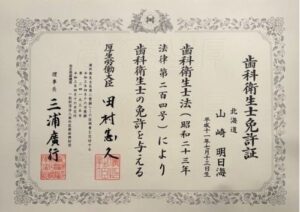 歯科衛生士免許証
北海道
山崎明日海
平成十一年七月十三日生
歯科衛生士法(昭和二十三年
法律第二百四号)により
歯科衛生士の免許を与える
厚生労働大臣 田村憲久
理事長 三浦廣行